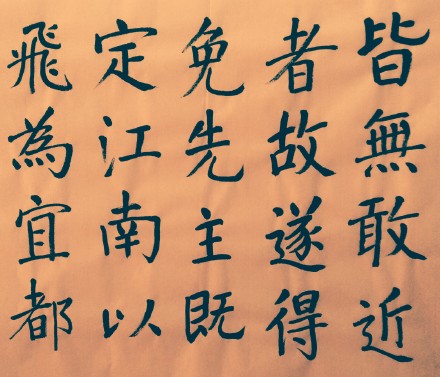 皆無敢近
者故遂得
免先主既
定江南以
飛為宜都